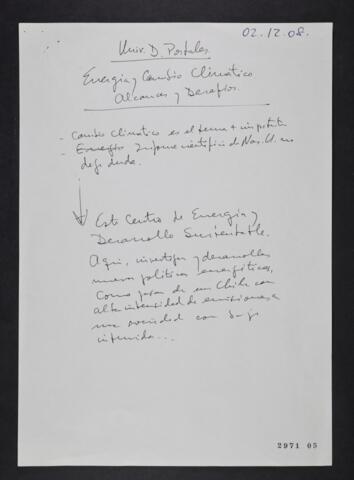 02.12.08.
Univ. D. Portales.
Energía y Cambio Climático
Alcances y Desafíos.
- Cambio Climático es el tema + importante
- Energía Informe científico de Nac. U. no
deja duda.
Este Centro de Energía y
Desarrollo Sustentable.
Aquí, investigar y desarrollar
nuevas políticas energéticas,
Como pasar de un Chile con
alta intensidad de emisiones a
una sociedad con baja
intensidad...
2971 05